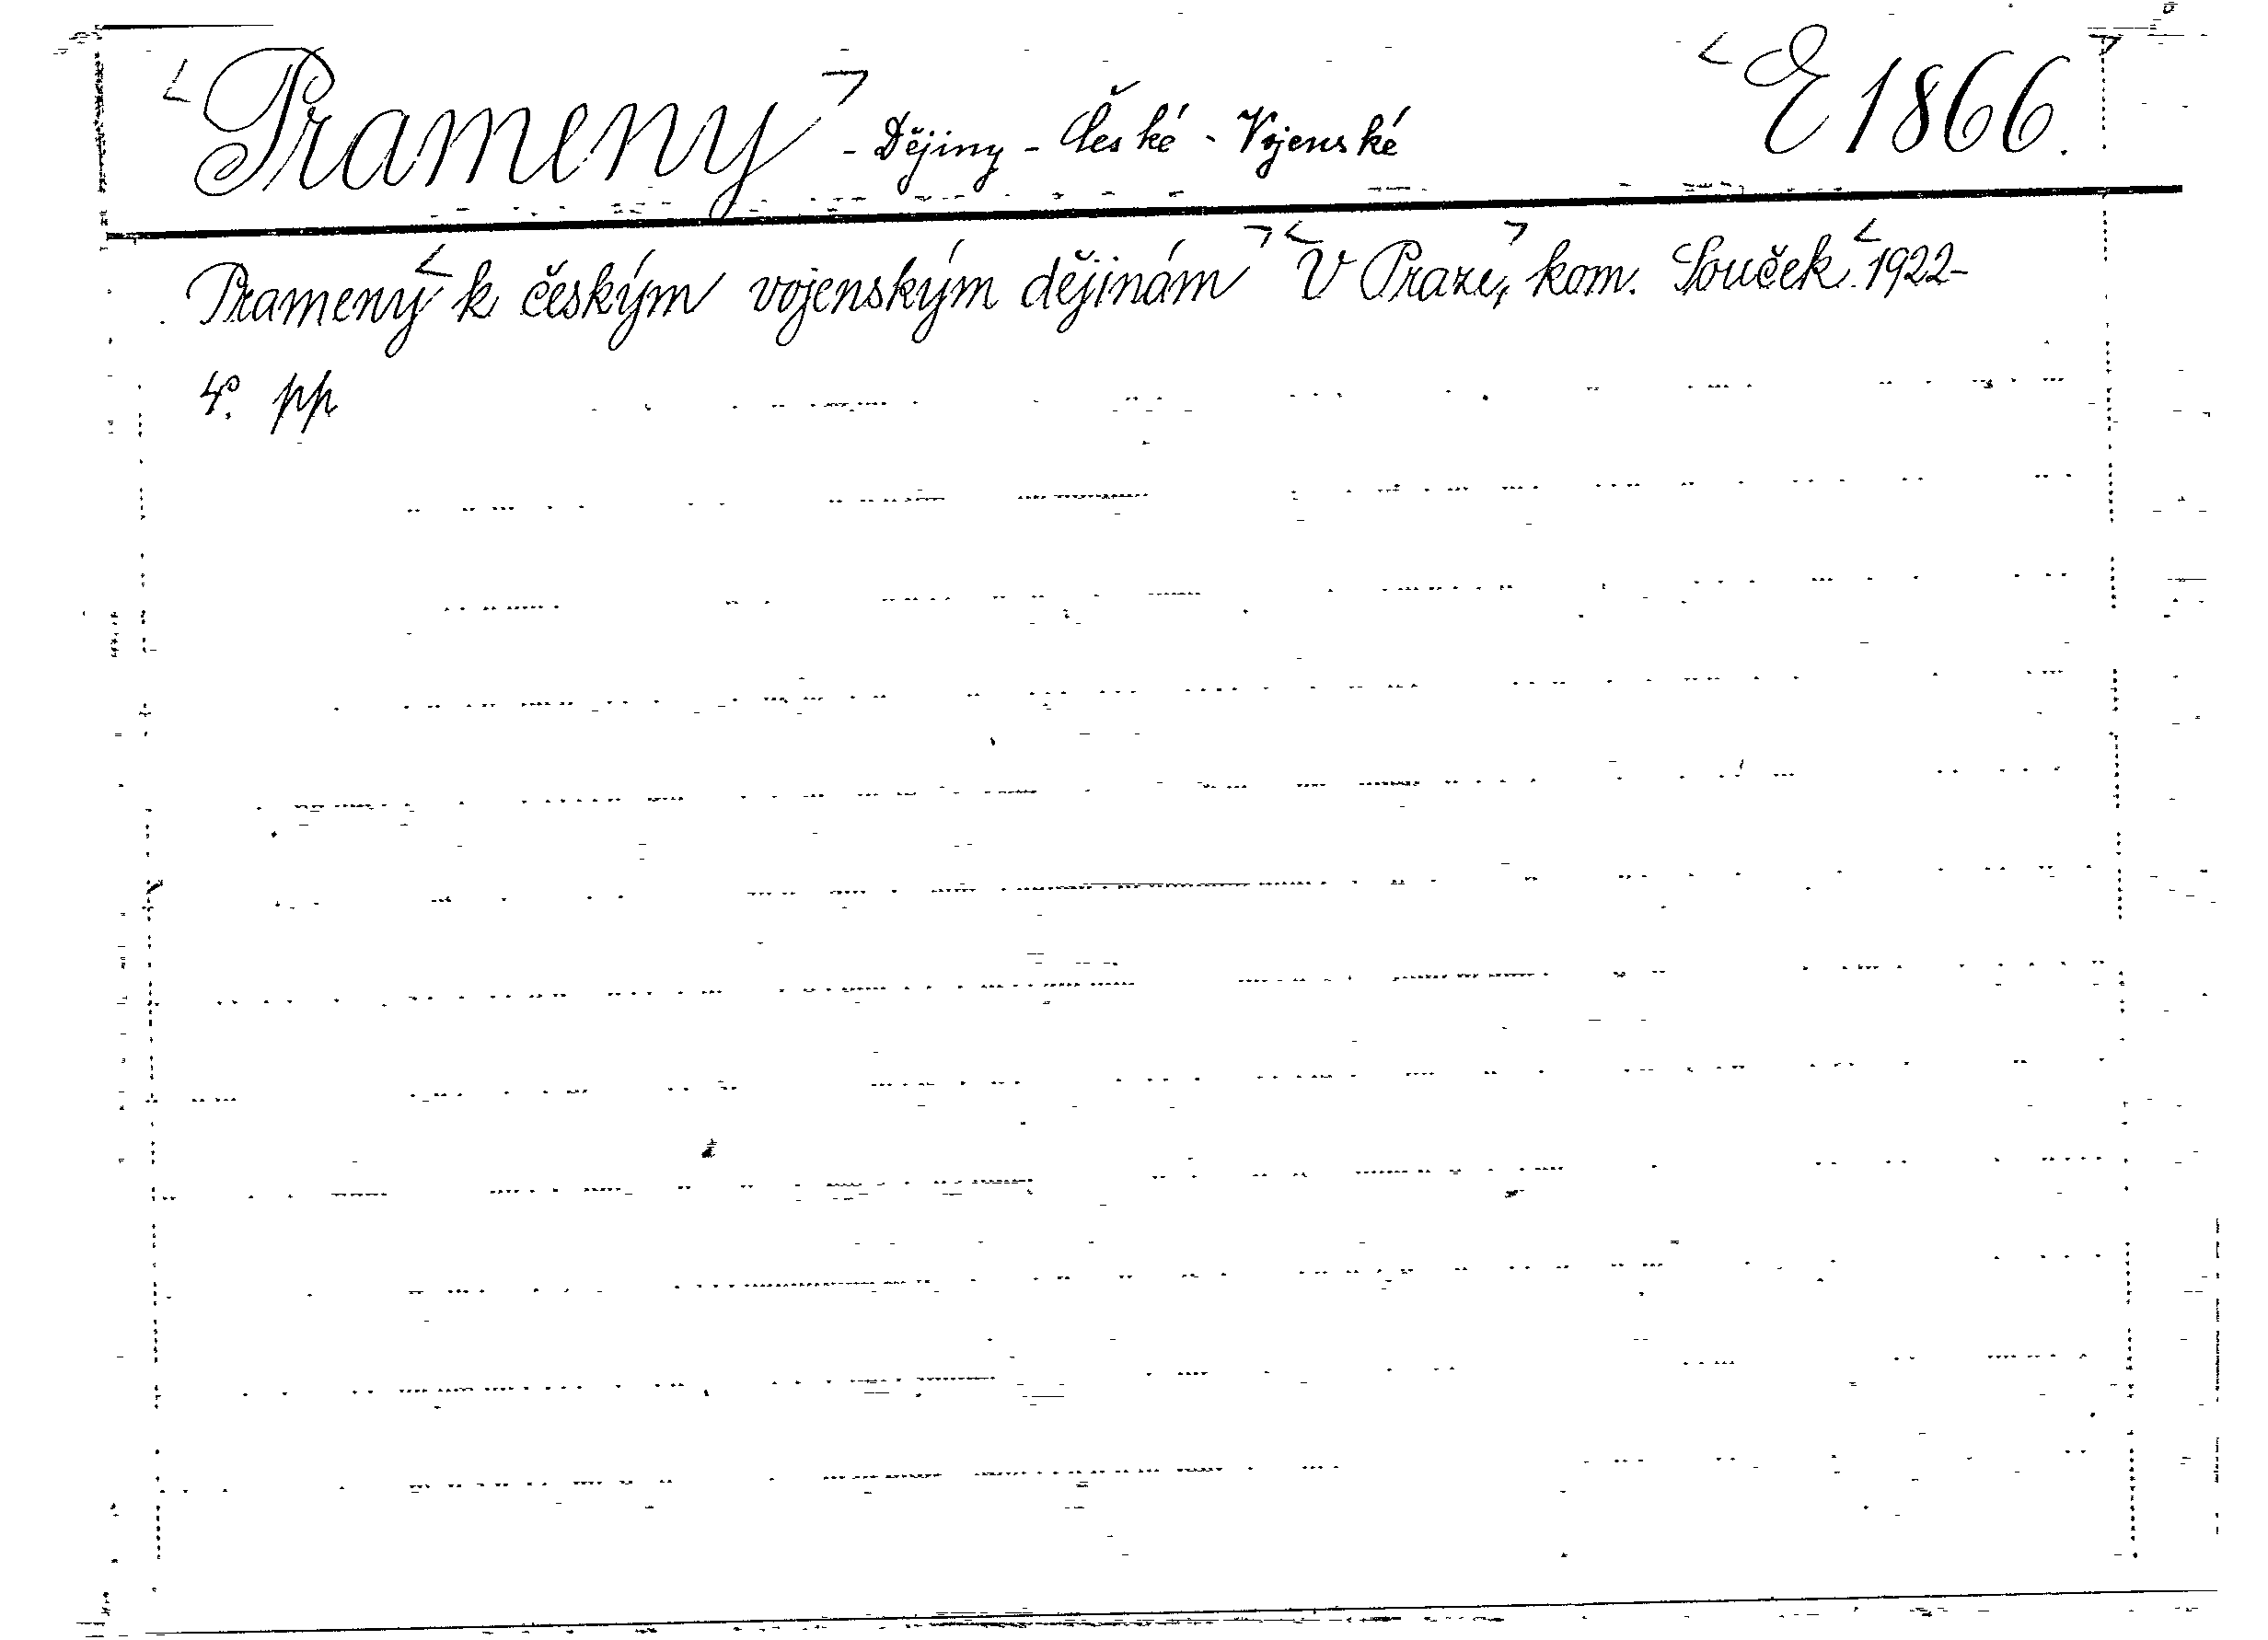 Prameny - Dějiny - České - Vojenské E 1866.
Prameny k českým vojenským dějinám V Praze, kom. Souček. 1922-
4°. pp